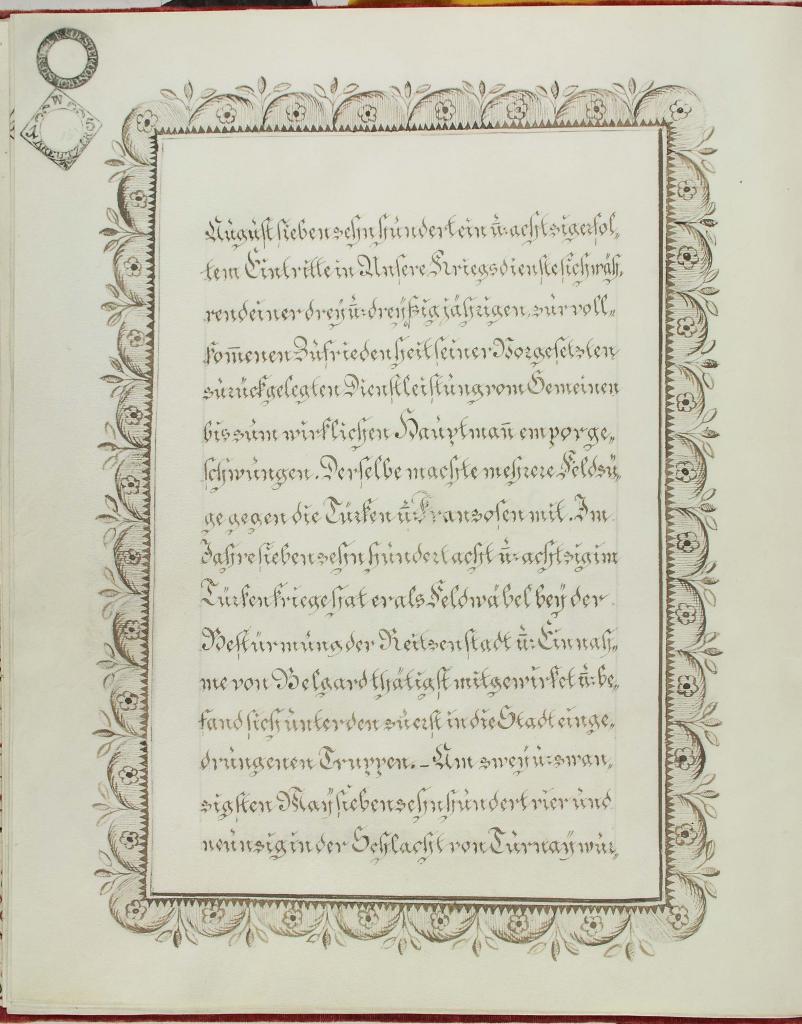 August siebenzehnhundert ein ū: achtzig erfol„
tem Eintritte in Unsere Kriegsdienste sich wäh„
rend einer drey ū: dreyßigjährigen, zur voll„
kom̄enen Zufriedenheit seiner Vorgesetzten
zurückgelegten Dienstleistung vom Gemeinen
bis zum wirklichen Hauptman̄ emporge„
schwungen. Derselbe machte mehrere Feldzü„
ge gegen die Türken ū: Franzosen mit. Im
Jahre siebenzehnhundert acht ū: achtzig im
Türkenkriege hat er als Feldwäbel bey der
Bestürmung der Reitzenstadt ū: Einnah„
me von Belgard thätigst mitgewirket ū: be„
fand sich unter den zuerst in die Stadt einge„
drungenen Truppen. – Am zwey ū: zwan„
zigsten May siebenzehnhundert vier und
neunzig in der Schlacht von Turnay wur„